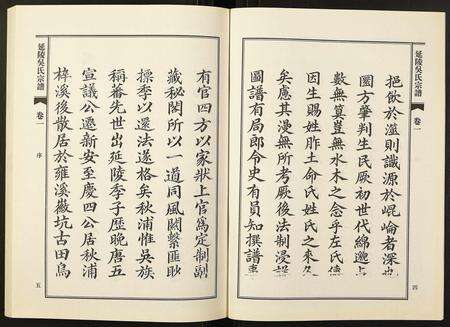 延陵吳氏宗譜
卷一
四
挹飲於溫則識源於崐崙者深
圜方肇判生民厥初世代綿邈
數無冀豈無水木之念乎左氏
因生賜姓胙土命氏姓氏之來
矣慮其漫無所考厥後法制浸
圖譜有局郎令史有員知撰譜
有官四方以家狀上官爲定制副
藏秘閣所以一道同風關繫匪
標季以還法遂格矣秋浦惟吳族
稱蕃先世出延陵季子歷晚唐五
宣議公遷新安至慶四公居秋浦
梓溪後散居於雍溪嶽坑古田烏
延陵吳氏宗譜
卷一
序
五